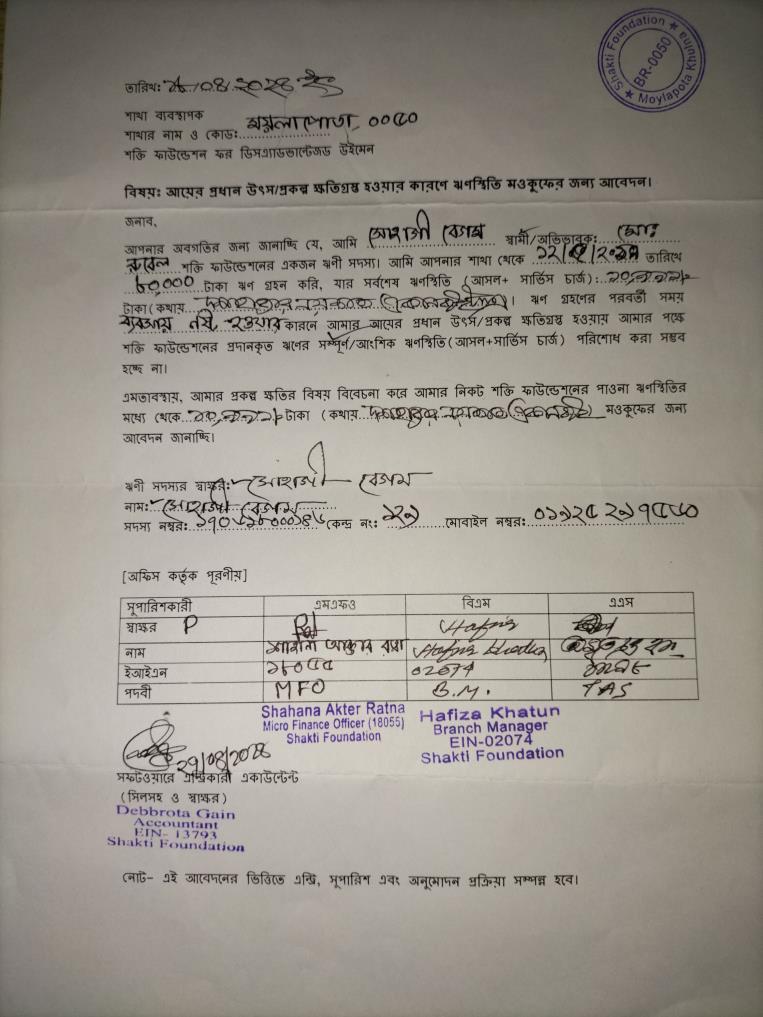 Shakti Foundation ★ Moylapota Khulna ★
BR-0050
তারিখঃ
শাখা ব্যবস্থাপক
শাখার নাম ও কোড: ময়লাপোতা, ০০৫০
শক্তি ফাউন্ডেশন ফর ডিসএ্যাডভান্টেজড উইমেন
বিষয়: আয়ের প্রধান উৎস/প্রকল্প ক্ষতিগ্রস্থ হওয়ার কারণে ঋণস্থিতি মওকুফের জন্য আবেদন।
জনাব,
আপনার অবগতির জন্য জানাচ্ছি যে, আমি বেগম স্বামী/অভিভাবক: মোঃ
রুবেল শক্তি ফাউন্ডেশনের একজন ঋণী সদস্য। আমি আপনার শাখা থেকে তারিখে
৮০,০০০ টাকা ঋণ গ্রহন করি, যার সর্বশেষ ঋণস্থিতি (আসল+ সার্ভিস চার্জ):
টাকা(কথায় )। ঋণ গ্রহণের পরবর্তী সময়
ব্যবসায় হওয়ার কারনে আমার আয়ের প্রধান উৎস/প্রকল্প ক্ষতিগ্রস্থ হওয়ায় আমার পক্ষে
শক্তি ফাউন্ডেশনের প্রদানকৃত ঋণের সম্পূর্ন/আংশিক ঋণস্থিতি(আসল+সার্ভিস চার্জ) পরিশোধ করা সম্ভব
হচ্ছে না।
এমতাবস্থায়, আমার প্রকল্প ক্ষতির বিষয় বিবেচনা করে আমার নিকট শক্তি ফাউন্ডেশনের পাওনা ঋণস্থিতির
মধ্যে থেকে টাকা (কথায় ) মওকুফের জন্য
আবেদন জানাচ্ছি।
ঋণী সদস্যের স্বাক্ষর: বেগম
নাম: বেগম
সদস্য নম্বর: কেন্দ্র নং: ১২৯ মোবাইল নম্বর:
[অফিস কর্তৃক পূরণীয়]
সুপারিশকারী এমএফও বিএম এএস
স্বাক্ষর P Hafiza
নাম শাহানা আক্তার রত্না Hafiza Khatun
ইআইএন ১৮০৫৫ 02074
পদবী MFO B.M.
Shahana Akter Ratna
Micro Finance Officer (18055)
Shakti Foundation
Hafiza Khatun
Branch Manager
EIN-02074
Shakti Foundation
সফটওয়ারে এন্ট্রিকারী একাউন্টেন্ট
(সিলসহ ও স্বাক্ষর)
Debbrota Gain
Accountant
EIN- 13793
Shakti Foundation
নোট- এই আবেদনের ভিত্তিতে এন্ট্রি, সুপারিশ এবং অনুমোদন প্রক্রিয়া সম্পন্ন হবে।